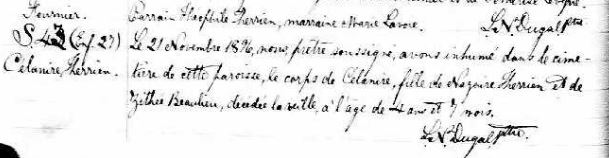 Fournier. Parrain Théophile Therrien, marraine Marie Lavoie.
L. N. Dugal ptre
S. 43 (Enf. 27) Le 21 Novembre 1896, nous, prêtre soussigné, avons inhumé dans le cime-
Célanire Therrien. tière de cette paroisse, le corps de Célanire, fille de Nazaire Therrien et de
Zithée Beaulieu, décédée la veille, à l'âge de 4 ans et 7 mois.
L. N. Dugal ptre.